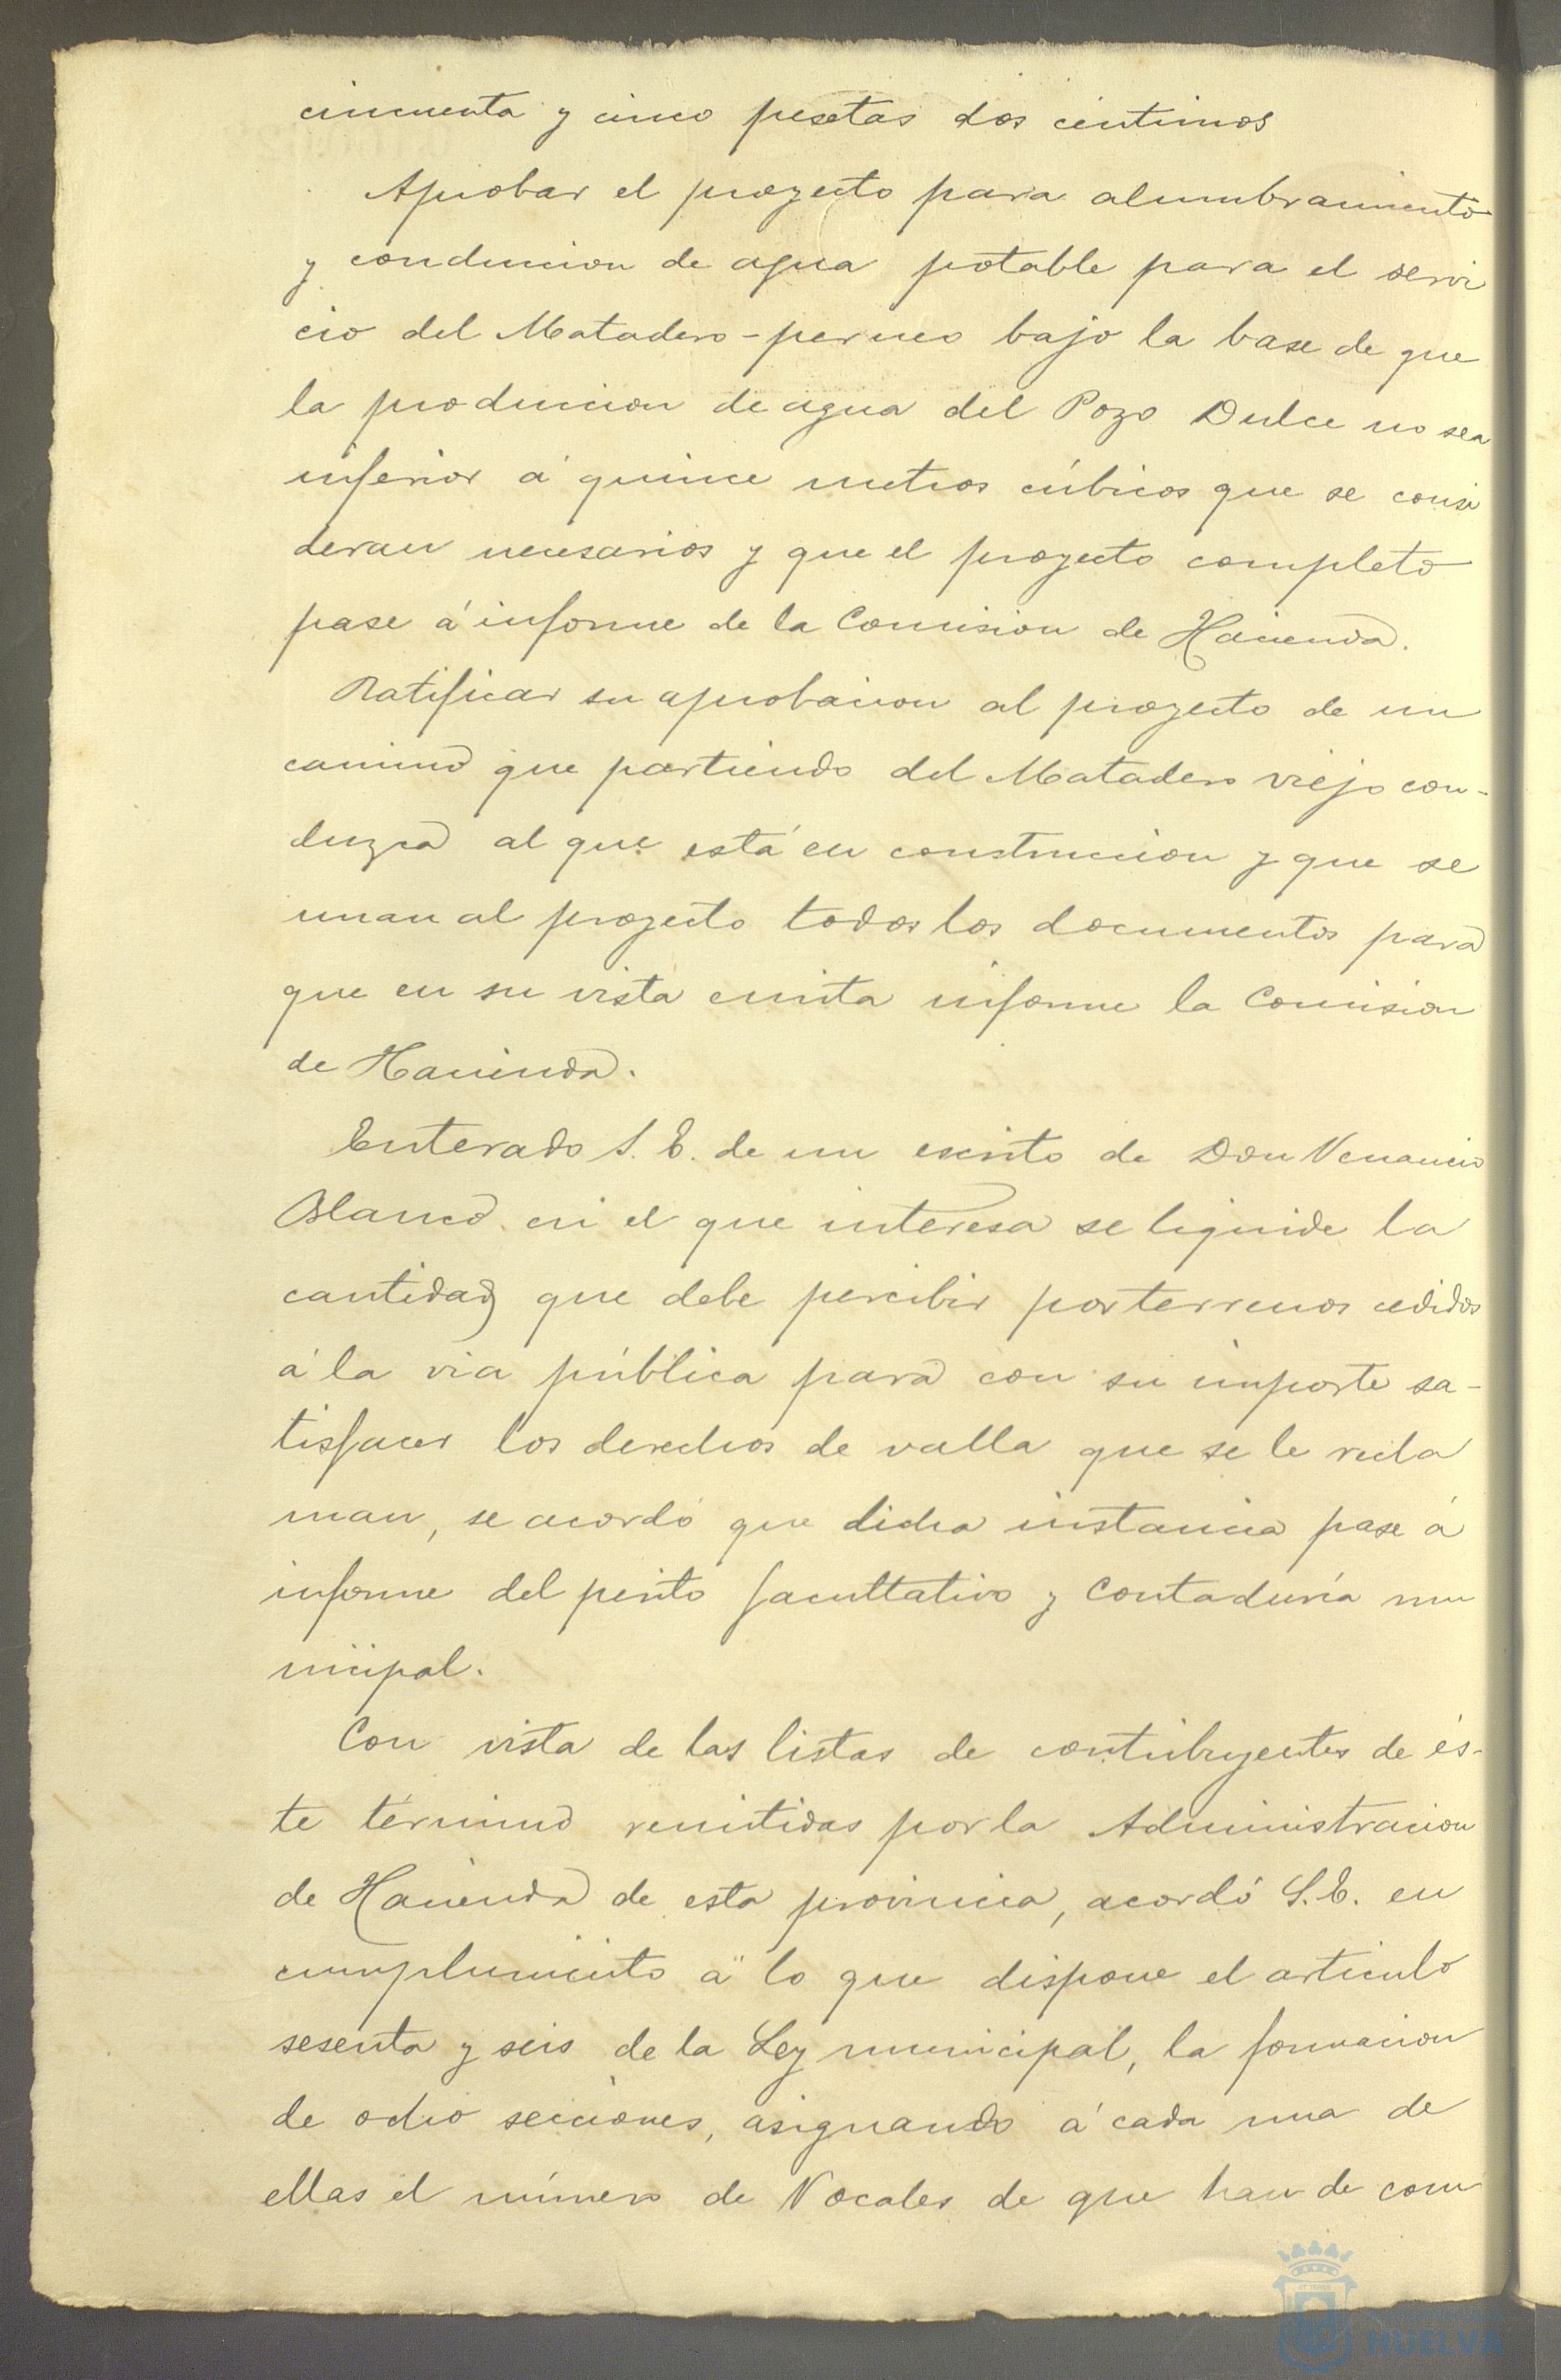 cincuenta y cinco pesetas dos céntimos
Aprobar el proyecto para alumbramiento
y conduccion de agua potable para el servi
cio del Matadero-perneo bajo la base de que
la produccion de agua del Pozo Dulce no sea
inferior á quince metros cúbicos que se consi
deran necesarios y que el proyecto completo
pase á informe de la Comision de Hacienda.
Ratificar su aprobacion al proyecto de un
camino que partiendo del Matadero viejo con-
duzca al que está en construccion y que se
unan al proyecto todos los documentos para
que en su vista emita informe la Comision
de Hacienda.
Enterado S. E. de un escrito de Don Venancio
Blanco en el que interesa se liquide la
cantidad que debe percibir por terrenos cedidos
á la via pública para con su importe sa-
tisfacer los derechos de valla que se le recla
man, se acordó que dicha instancia pase á
informe del perito facultativo y Contaduría mu
nicipal.
Con vista de las listas de contribuyentes de és-
te término remitidas por la Administracion
de Hacienda de esta provincia, acordó S. E. en
cumplimiento á lo que dispone el articulo
sesenta y seis de la Ley municipal, la formacion
de ocho secciones, asignando á cada una de
ellas el número de Vocales de que han de com
HUELVA